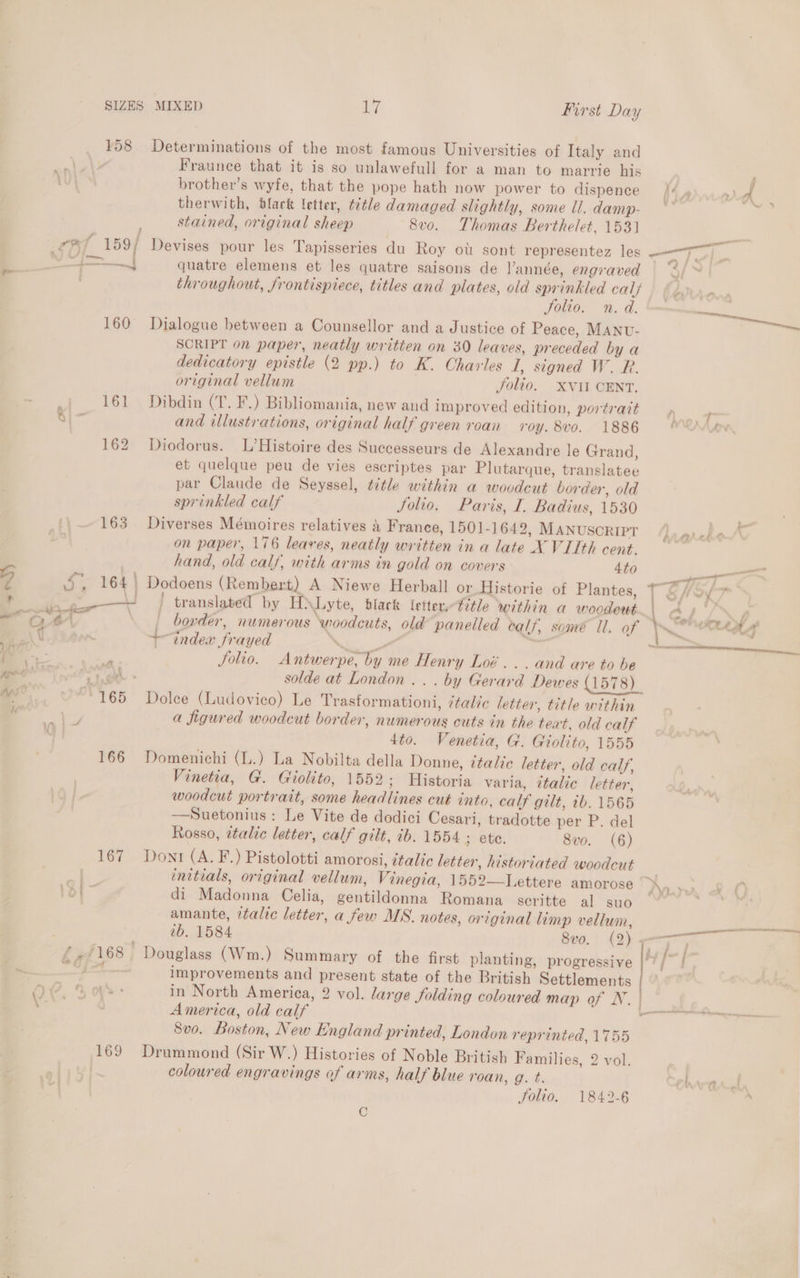 SIZES MIXED 17 First Day
158 Determinations of the most famous Universities of Italy and
Fraunce that it is so unlawefull for a man to marrie his
brother's wyfe, that the pope hath now power to dispence
therwith, black letter, title damaged slightly, some ll. damp-
stained, original sheep 8vo. Thomas Berthelet, 1531
159 Devises pour les Tapisseries du Roy où sont representez les
quatre elemens et les quatre saisons de l'année, engraved
throughout, frontispiece, titles and plates, old sprinkled calf
folio. n. d.
160 Dialogue between a Counsellor and a Justice of Peace, MANU-
SCRIPT on paper, neatly written on 30 leaves, preceded by a
dedicatory epistle (2 pp.) to K. Charles I, signed W. R.
original vellum folio. XVII CENT.
161 Dibdin (T. F.) Bibliomania, new and improved edition, portrait
and illustrations, original half green roan roy. 8vo. 1886
162 Diodorus. L'Histoire des Successeurs de Alexandre le Grand,
et quelque peu de vies escriptes par Plutarque, translatee
par Claude de Seyssel, title within a woodcut border, old
sprinkled calf folio. Paris, I. Badius, 1530
163 Diverses Mémoires relatives à France, 1501-1642, MANUSCRIPT
on paper, 176 leaves, neatly written in a late XVIIth cent.
hand, old calf, with arms in gold on covers 4to
164 Dodoens (Rembert) A Niewe Herball or Historie of Plantes,
translated by H. Lyte, black letter, title within a woodcut
border, numerous woodcuts, old panelled calf, some ll. of
index frayed
folio. Antwerpe, by me Henry Loë . . . and are to be
solde at London . . . by Gerard Dewes (1578)
165 Dolce (Ludovico) Le Trasformationi, italic letter, title within
a figured woodcut border, numerous cuts in the text, old calf
4to. Venetia, G. Giolito, 1555
166 Domenichi (L.) La Nobilta della Donne, italic letter, old calf,
Vinetia, G. Giolito, 1552; Historia varia, italic letter,
woodcut portrait, some headlines cut into, calf gilt, ib. 1565
—Suetonius: Le Vite de dodici Cesari, tradotte per P. del
Rosso, italic letter, calf gilt, ib. 1554; etc. 8vo. (6)
167 Doni (A. F.) Pistolotti amorosi, italic letter, historiated woodcut
initials, original vellum, Vinegia, 1552—Lettere amorose
di Madonna Celia, gentildonna Romana scritte al suo
amante, italic letter, a few MS. notes, original limp vellum,
ib. 1584 8vo. (2)
168 Douglass (Wm.) Summary of the first planting, progressive
improvements and present state of the British Settlements
in North America, 2 vol. large folding coloured map of N.
America, old calf
8vo. Boston, New England printed, London reprinted, 1755
169 Drummond (Sir W.) Histories of Noble British Families, 2 vol.
coloured engravings of arms, half blue roan, g. t.
folio. 1842-6
C